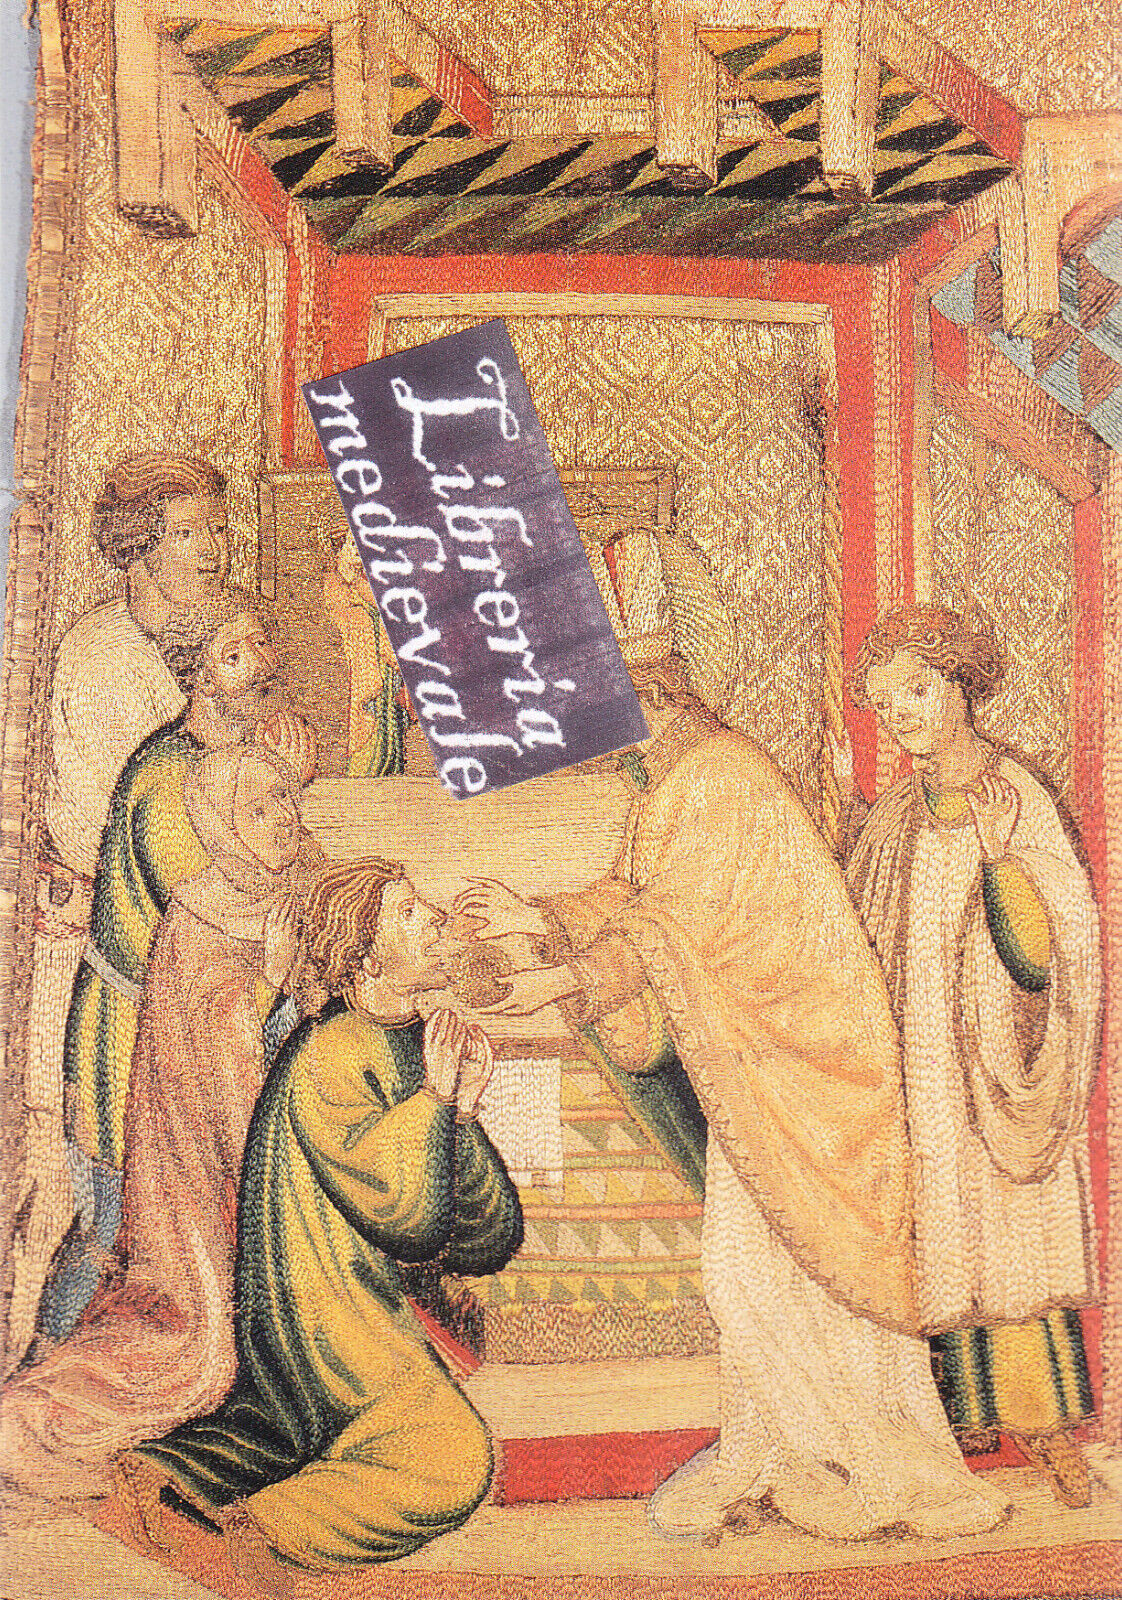 Libreria
medievale